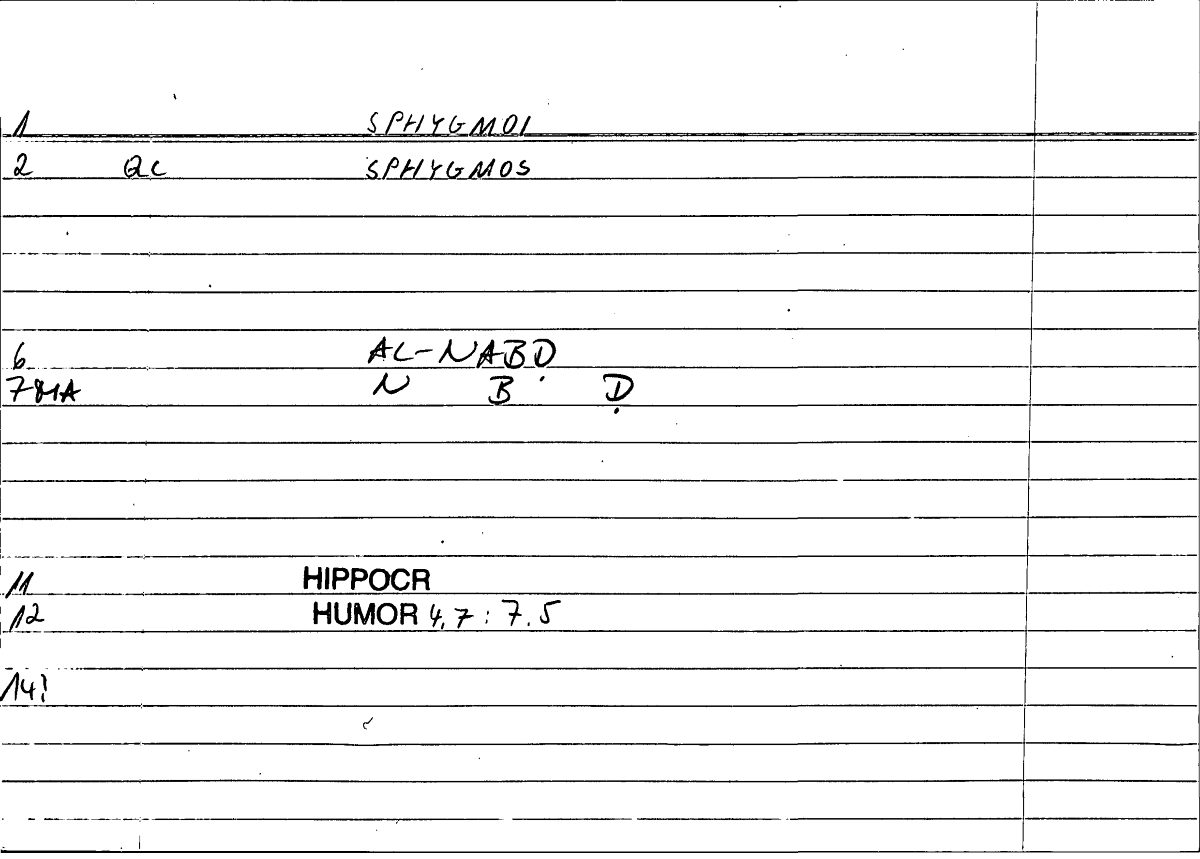 1 SPHYGMOI
2 QC SPHYGMOS
6 AL-NABḌ
7 MA N B Ḍ
11 HIPPOCR
12 HUMOR 4,7 : 7.5
14!